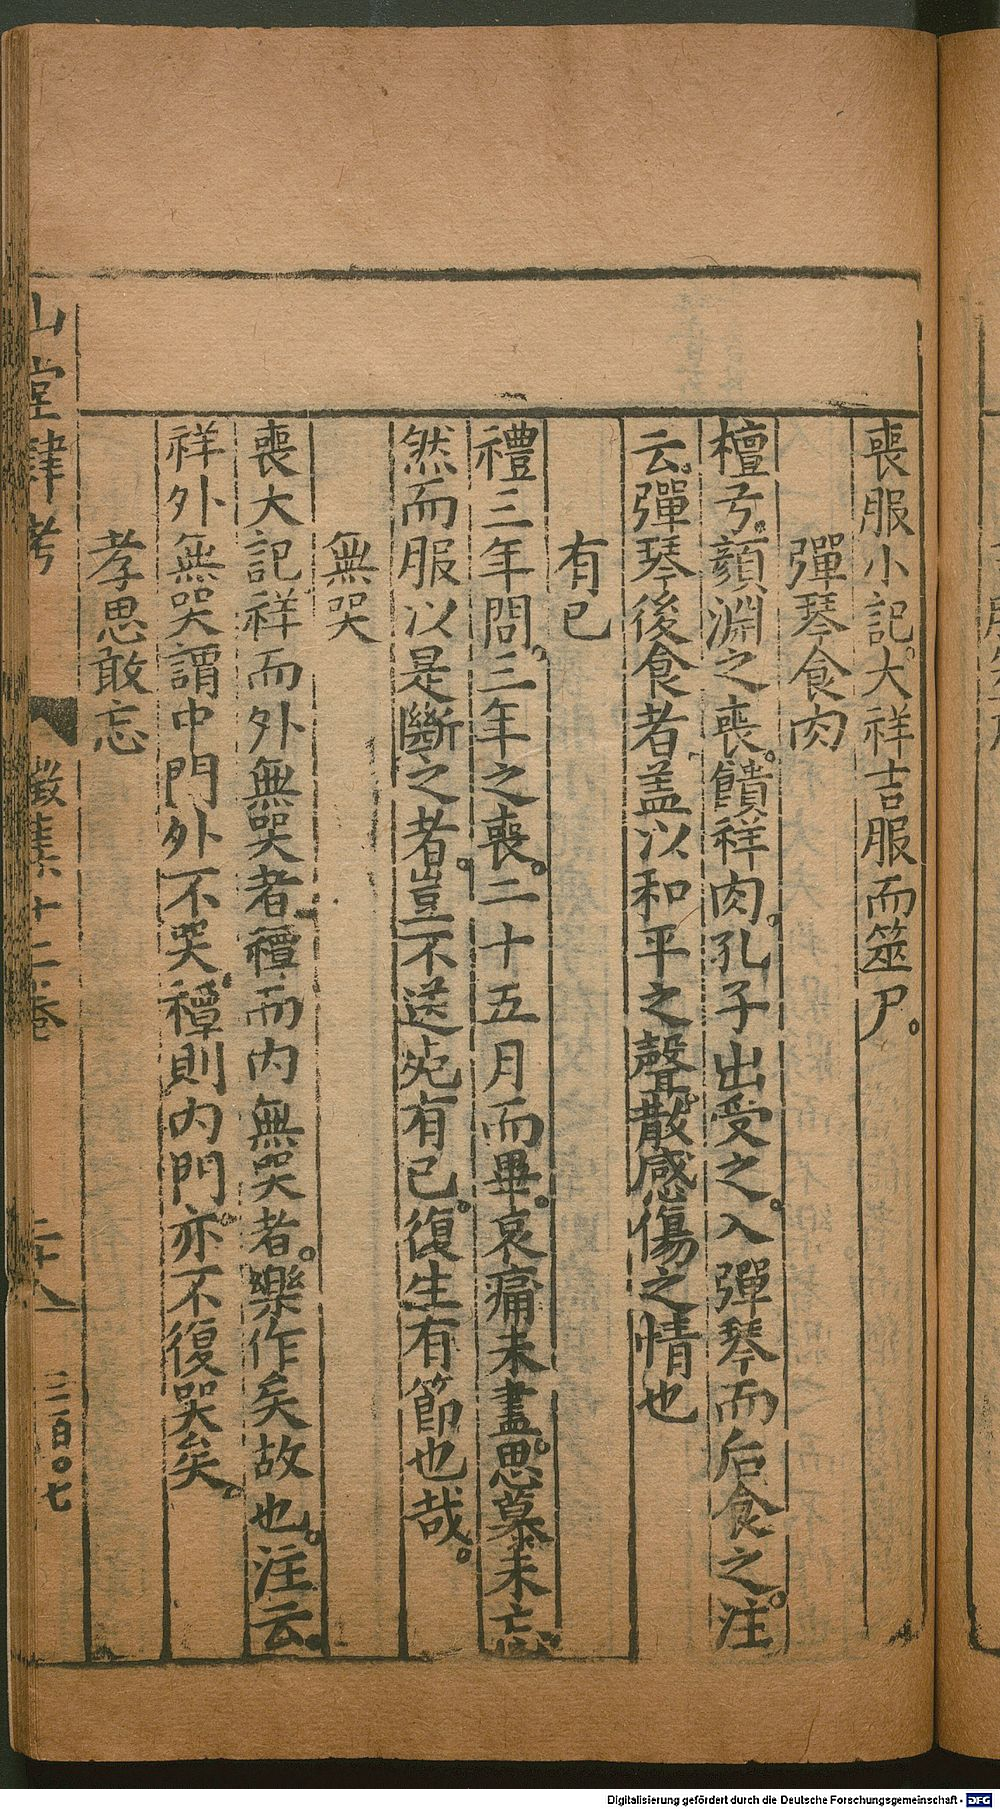 喪服小記。大祥吉服而筮尸。
彈琴食肉
檀弓。顏淵之喪。饋祥肉。孔子出受之。入彈琴而后食之。注
云。彈琴後食者蓋以和平之聲。散感傷之情也
有已
禮三年問。三年之喪。二十五月而畢。哀痛未盡。思慕未忘。
然而服以是斷之者。豈不送死有已。復生有節也哉。
無哭
喪大記祥而外無哭者。禫而內無哭者。樂作矣故也。注云。
祥外無哭謂中門外不哭。禫則內門。亦不復哭矣。
孝思敢忘
山堂肆考 徵集十二卷 二十八 三百〇七
Digitalisierung gefördert durch die Deutsche Forschungsgemeinschaft - DFG